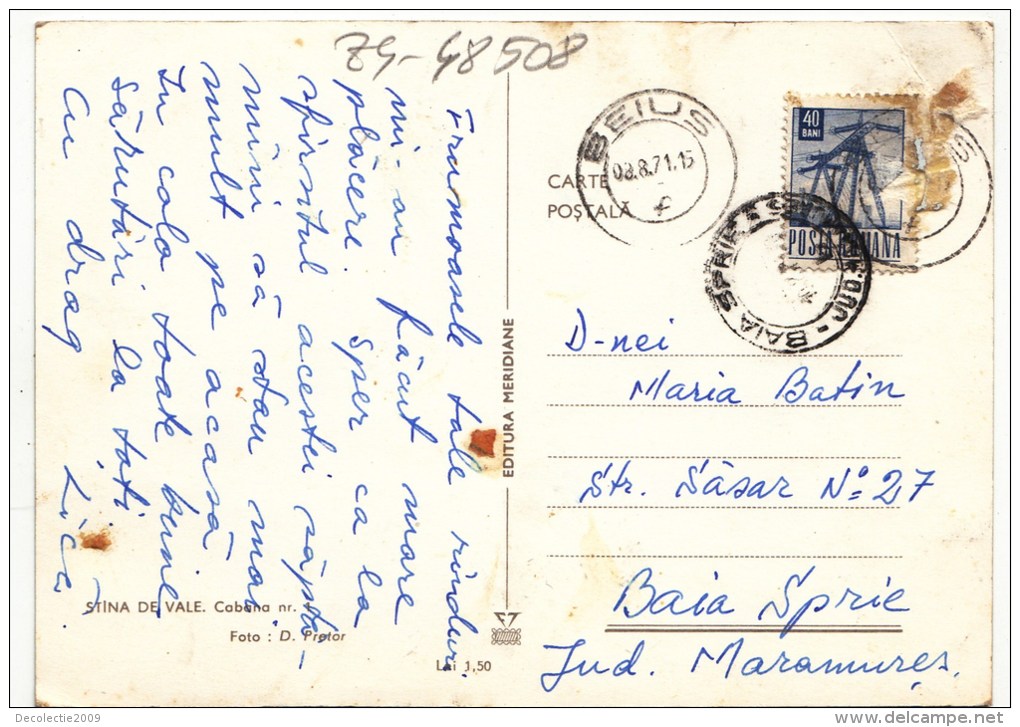 ZG-48508
Frumoasele tale rînduri
mi-au făcut mare
plăcere. Sper ca la
sfîrșitul acestei săptă-
mîni să stau mai
mult pe acasă
Cu cola toate bune
Sărutări la toți
Cu drag Lica
STÎNA DE VALE. Cabana nr.
Foto : D. Pretor
Lei 1,50
EDITURA MERIDIANE
BEIUS
08.8.71.15
CARTE
POȘTALĂ
40
BANI
POSTA ROMANA
BAIA SPRIE
D-nei
Maria Batin
Str. Săsar No 27
Baia Sprie
Jud. Maramureș.
Decolectie2009
www.delcampe.net